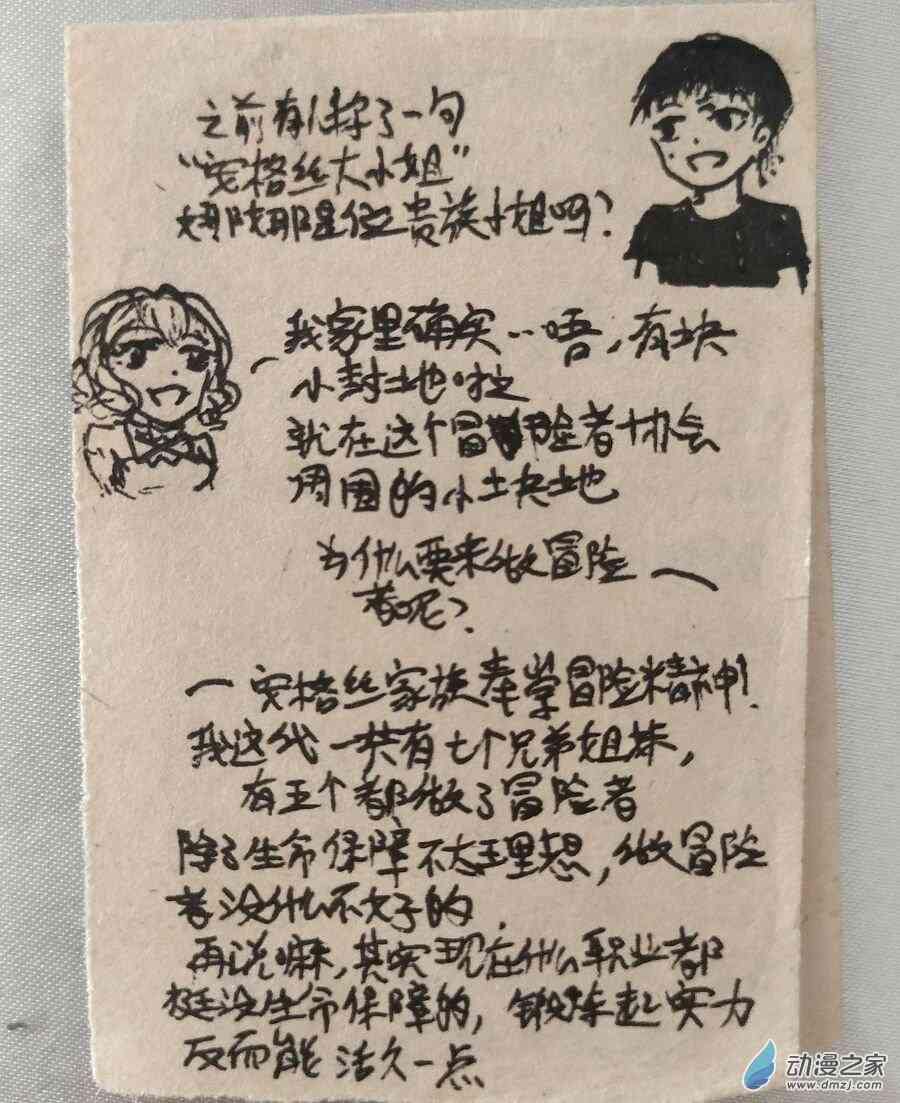 之前有人称了一句
“安格丝大小姐”
娜陀娜是位贵族小姐吗?
我家里确实…唔,有块
小封土地啦
就在这个冒险者协会
周围的小土块地
为什么要来做冒险
者呢?
安格丝家族奉学冒险精神!
我这代一共有七个兄弟姐妹,
有五个都做了冒险者
除了生命保障不太理想,做冒险
者没什么不好的.
再说嘛,其实现在什么职业都
挺没生命保障的,锻炼起实力
反而能活久一点
动漫之家
www.dmzj.com